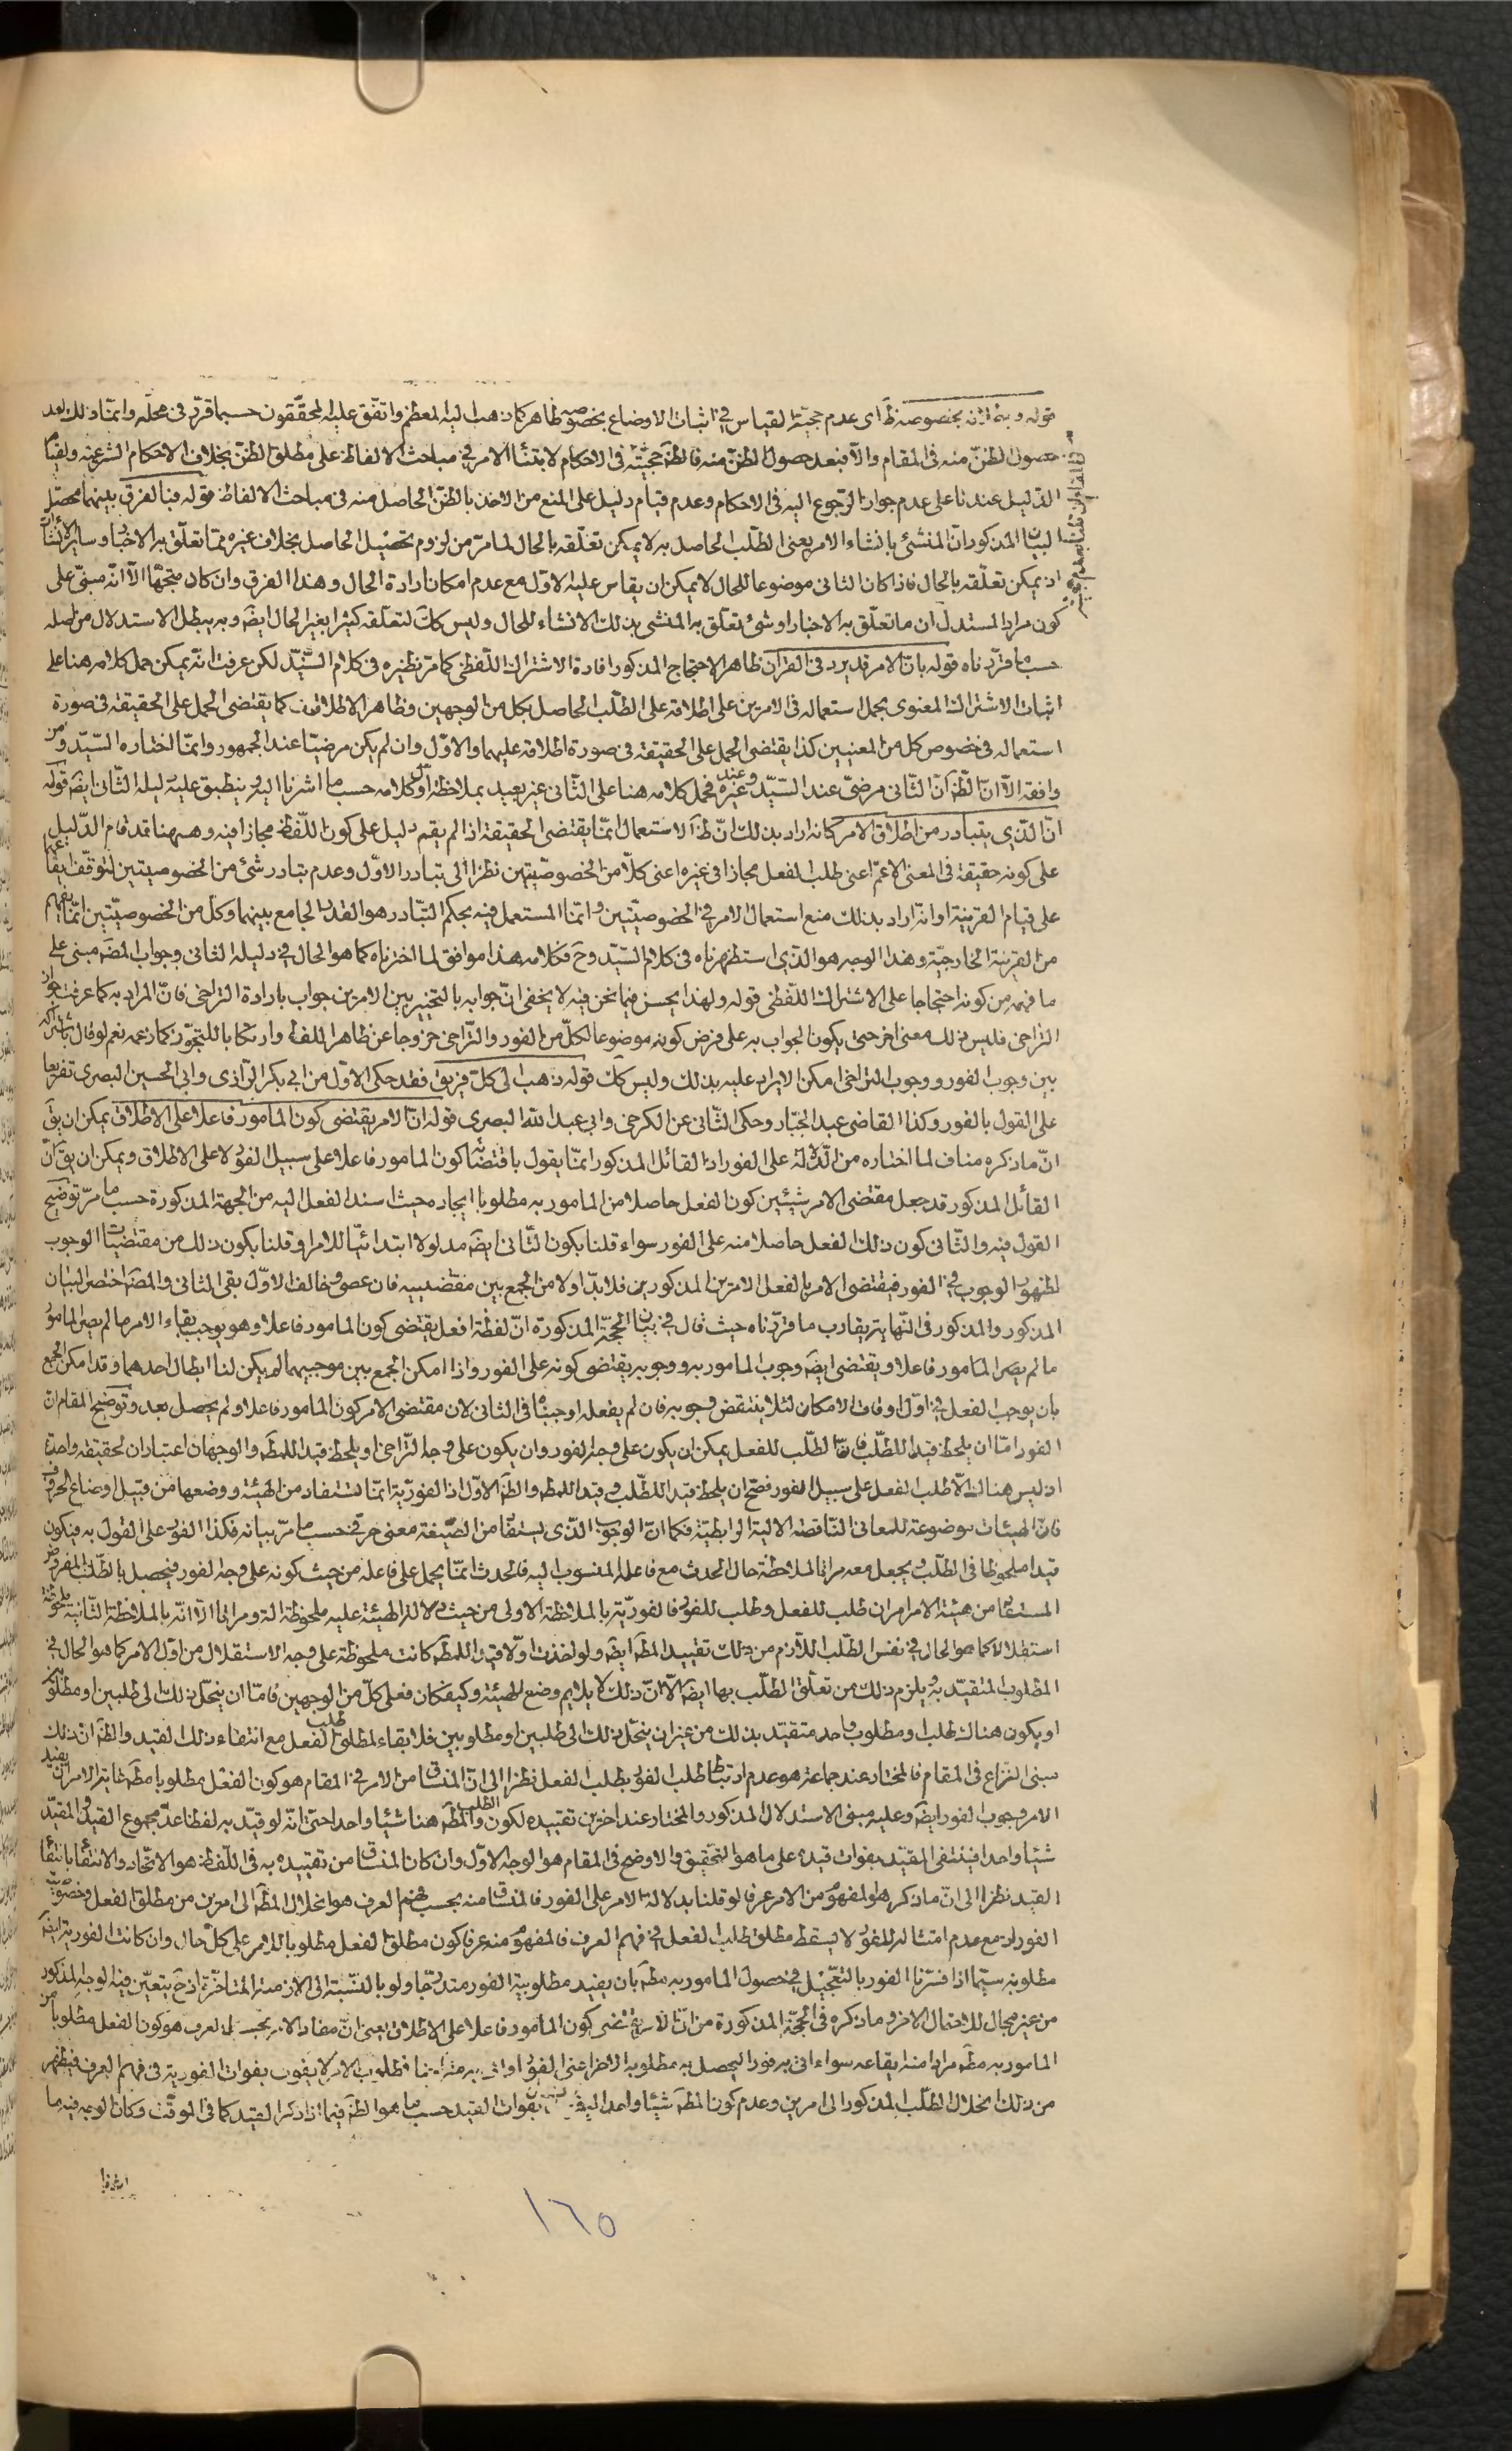 قوله وبطلانه بخصوصه ظ اى عدم حجية القياس في اثبات الاوضاع بخصوصه ظاهر كما ذهب اليه المعظم واتفق عليه المحققون حسبما قرر فى محله وانما ذلك بعد
حصول الظن منه فى المقام والا فبعد حصول الظن منه فالظ حجيته فى الاحكام لابتناء الامر في مباحث الالفاظ على مطلق الظن بخلاف الاحكام الشرعية ولقيام
الدليل عندنا على عدم جواز الرجوع اليه فى الاحكام وعدم قيام دليل على المنع من الاخذ بالظن الحاصل منه فى مباحث الالفاظ قوله فبالفرق بينهما محصل
البيان المذكور ان المنشئ بانشاء الامر يعنى الطلب الحاصل به لا يمكن تعلقه بالحال لما مر من لزوم تحصيل الحاصل بخلاف غيره مما تعلق به الاخبار وساير الانشاآت
اذ يمكن تعلقه بالحال فاذا كان الثانى موضوعا للحال لا يمكن ان يقاس عليه الاول مع عدم امكان ارادة الحال وهذا الفرق وان كان متجها الا انه مبنى على
كون مراد المستدل ان ما تعلق به الاخبار او شئ تعلق به المنشى بذلك الانشاء للحال وليس كك لتعلقه كثيرا بغير الحال ايضَ وبه يبطل الاستدلال من اصله
حسب ما قررناه قوله بان الامر قد يرد فى القرآن ظاهر الاحتجاج المذكور افادة الاشتراك اللفظى كما مر نظيره فى كلام السيد لكن عرفت انه يمكن حمل كلامه هنا على
اثبات الاشتراك المعنوى بحمل استعماله فى الامرين على اطلاقه على الطلب الحاصل بكل من الوجهين وظاهر الاطلاق كما يقتضى الحمل على الحقيقة فى صورة
استعماله فى خصوص كل من المعنيين كذا يقتضى الحمل على الحقيقة فى صورة اطلاقه عليهما والاول وان لم يكن مرضيا عند الجمهور وانما اختاره السيد ومن
وافقه الا ان الظ ان الثانى مرضى عند السيد وعند غيره فحمل كلامه هنا على الثانى غير بعيد بملاحظة اول كلامه حسب ما اشرنا اليه وينطبق عليه دليله الثانى ايضَ قوله
ان الذى يتبادر من اطلاق الامر كانه اراد بذلك ان ظ الاستعمال انما يقتضى الحقيقة اذا لم يقم دليل على كون اللفظ مجازا فيه وههنا قد قام الدليل
على كونه حقيقة فى المعنى الاعم اعنى طلب الفعل مجازا فى غيره اعنى كلا من الخصوصيتين نظرا الى تبادر الاول وعدم تبادر شئ من الخصوصيتين لتوقف ايقاعها
على قيام القرينة او انه اراد بذلك منع استعمال الامر في الخصوصيتين وانما المستعمل فيه بحكم التبادر هو القدر الجامع بينهما وكل من الخصوصيتين انما يفهم
من القرينة الخارجية وهذا الوجه هو الذى استظهرناه فى كلام السيد وح فكلامه هذا موافق لما اخترناه كما هو الحال في دليله الثانى وجواب المصَ مبنى على
ما فهمه من كونه احتجاجا على الاشتراك اللفظى قوله ولهذا يحسن فيما نحن فيه لا يخفى ان جوابه بالتخيير بين الامرين جواب بارادة التراخى فان المراد به كما عرفت جواز
التراخى فليس ذلك معنى اخر حتى يكون الجواب به على فرض كونه موضوعا لكل من الفور والتراخى خروجا عن ظاهر اللفظ وارتكابا للتجوز كما زعمه نعم لو قال باشتراكه
بين وجوب الفور ووجوب التراخى امكن الايراد عليه بذلك وليس كك قوله ذهب الى كل فريق فقد حكى الاول من ابى بكر الرازى وابى الحسين البصرى تفريعا
على القول بالفور وكذا القاضى عبد الجبار وحكى الثانى عن الكرخى وابى عبد الله البصرى قوله ان الامر يقتضى كون المامور فاعلا على الاطلاق يمكن ان يق
ان ما ذكره مناف لما اختاره من الدلالة على الفور اذ القائل المذكور انما يقول باقتضائه كون المامور فاعلا على سبيل الفور لا على الاطلاق ويمكن ان يق ان
القائل المذكور قد جعل مقتضى الامر شيئين كون الفعل حاصلا من المامور به مطلوبا ايجاده حيث اسند الفعل اليه من الجهة المذكورة حسب ما مر توضيح
القول فيه والثانى كون ذلك الفعل حاصلا منه على الفور سواء قلنا بكون الثانى ايضَ مدلولا ابتدائيا للامر او قلنا بكون ذلك من مقتضيات الوجوب
لظهور الوجوب في الفور فيقتضى الامر بالفعل الامرين المذكورين فلا بد اولا من الجمع بين مقتضييه فان عصى وخالف الاول بقى الثانى والمصَ اختصر البيان
المذكور والمذكور فى النهاية يقارب ما قررناه حيث قال في بيان الحجة المذكورة ان لفظة افعل يقتضى كون المامور فاعلا وهو يوجب بقاء الامر ما لم يصر المامور
ما لم يصر المامور فاعلا ويقتضى ايضَ وجوب المامور به ووجوبه يقتضى كونه على الفور واذا امكن الجمع بين موجبيهما لم يكن لنا ابطال احدهما وقد امكن الجمع
بان يوجب الفعل في اول اوقات الامكان لئلا ينتقض وجوبه فان لم يفعله اوجبناه فى الثانى لان مقتضى الامر كون المامور فاعلا ولم يحصل بعد وتوضيح المقام ان
الفور اما ان يلحظ قيدا للطلب فان الطلب للفعل يمكن ان يكون على وجه الفور وان يكون على وجه التراخى او يلحظ قيدا للمط والوجهان اعتباران لحقيقة واحدة
اذ ليس هناك الا طلب الفعل على سبيل الفور فصح ان يلحظ قيدا للطلب وقيدا للمط والظ الاول اذ الفورية انما تستفاد من الهيئة ووضعها من قبيل اوضاع الحروف
فان الهيئات موضوعة للمعانى الناقصة الالية الرابطية فكما ان الوجوب الذى يستفاد من الصيغة معنى حرفى حسب ما مر بيانه فكذا الفور على القول به فيكون
قيدا ملحوظا فى الطلب ويجعل معه مراتا لملاحظة حال الحدث مع فاعله المنسوب اليه فالحدث انما يحمل على فاعله من حيث كونه على وجه الفور فيحصل بالطلب المفروض
المستفاد من هيئة الامر امران طلب للفعل وطلب للفور فالفورية بالملاحظة الاولى من حيث دلالة الهيئة عليه ملحوظة الة ومراتا الا انه بالملاحظة الثانية ملحوظة
استقلالا كما هو الحال في نفس الطلب اللازم من ذلك تقييد المط ايضَ ولو اخذت اولا قيدا للمط كانت ملحوظة على وجه الاستقلال من اول الامر كما هو الحال في
المطلوب المتقيد به ويلزم ذلك من تعلق الطلب بها ايضَ الا ان ذلك لا يلايم وضع الهيئة وكيفكان فعلى كل من الوجهين فاما ان ينحل ذلك الى طلبين او مطلوبين
او يكون هناك طلب ومطلوب واحد متقيد بذلك من غير ان ينحل ذلك الى طلبين او مطلوبين فلا بقاء لمطلوبية طلب الفعل مع انتفاء ذلك القيد والظ ان ذلك
مبنى النزاع فى المقام فالمختار عند جماعة هو عدم ارتباط طلب الفور بطلب الفعل نظرا الى ان المنساق من الامر في المقام هو كون الفعل مطلوبا مط غاية الامر ان يفيد
الامر وجوب الفور ايضَ وعليه مبنى الاستدلال المذكور والمختار عند اخرين تقييده لكون الطلب والمط هنا شيئا واحدا حتى انه لو قيد به لفظا عد مجموع القيد والمقيد
شيئا واحدا فينتفى المقيد بفوات قيده على ما هو التحقيق والاوضح فى المقام هو الوجه الاول وان كان المنساق من تقييده به فى اللفظ هو الاتحاد والانتفاء بانتفاء
القيد نظرا الى ان ما ذكر هو المفهوم من الامر عرفا لو قلنا بدلالة الامر على الفور فالمنساق منه بحسب فهم العرف هو انحلال المط الى امرين من مطلق الفعل وخصوصية
الفور اذ مع عدم امتثاله للفور لا يسقط مطلق طلب الفعل في فهم العرف فالمفهوم منه عرفا كون مطلق الفعل مطلوبا للامر على كل حال وان كانت الفورية ايضَ
مطلوبة سيما اذا فسرنا الفور بالتعجيل في حصول المامور به مط بان يفيد مطلوبية الفور متدرجا ولو بالنسبة الى الازمنة المتاخرة اذ ح يتعين فيه الوجه المذكور
من غير مجال للاحتمال الاخر وما ذكره فى الحجة المذكورة من ان الامر يقتضى كون المامور فاعلا على الاطلاق يعنى ان مفاد الامر بحسب العرف هو كون الفعل مطلوبا من
المامور به مط مرادا منه ايقاعه سواء اتى به فورا ليحصل به مطلوبه الاخر اعنى الفور او اتى به متراخيا فطلوب الامر لا يفوت بفوات الفورية فى فهم العرف فيظهر
من ذلك انحلال الطلب المذكور الى امرين وعدم كون المط شيئا واحدا بفوات القيد حسب ما هو الظ فيما اذا ذكر القيد كما فى الموقت وكان الوجه فيه ما
١٦٥